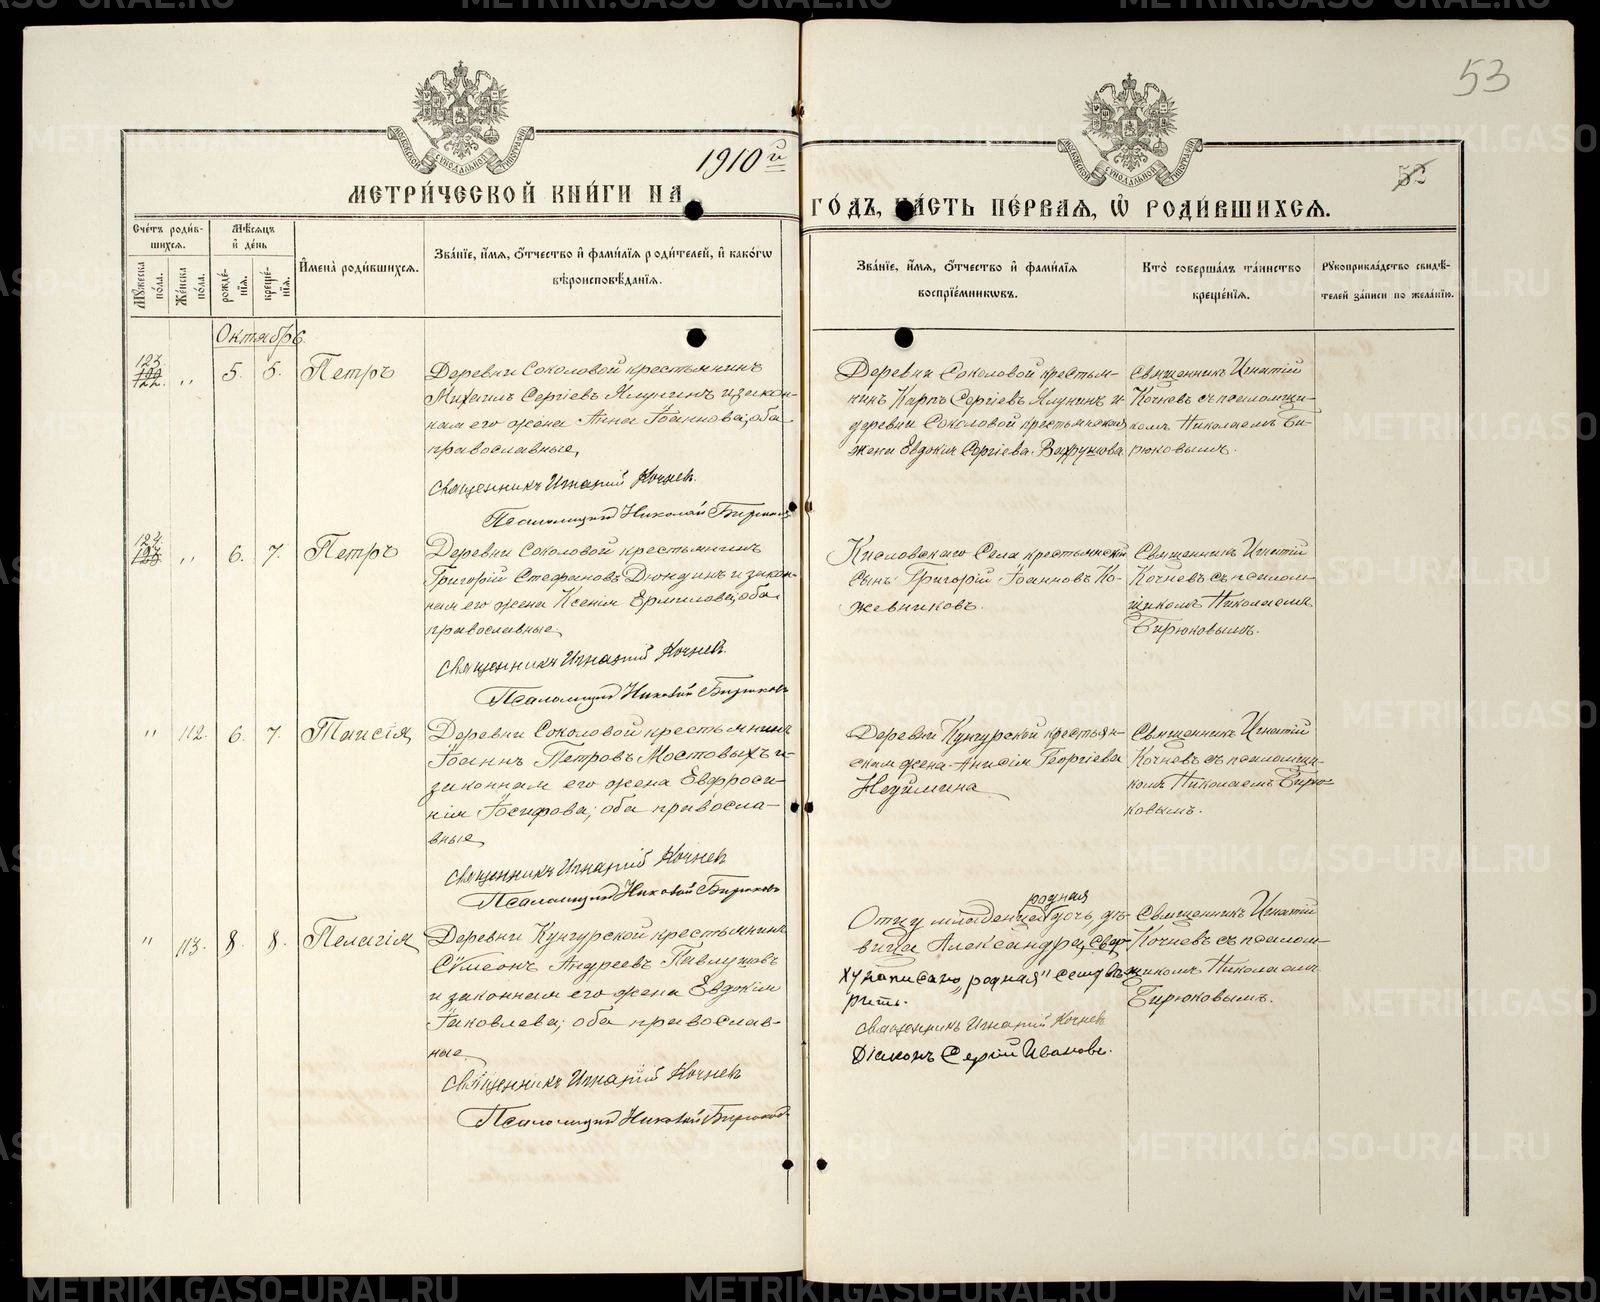 53
1910й
52
МЕТРИ́ЧЕСКОЙ КНИ́ГИ НА
ГО́ДЪ, ЧА́СТЬ ПЕ́РВАЯ, Ѡ РОДИ́ВШИХСЯ.
Сче́тъ роди́вшихся.
Му́жеска по́ла.
Же́нска по́ла.
Мѣ́сяцъ и де́нь
рожде́нїя.
креще́нїя.
И҆мена̀ роди́вшихся.
Зва́нїе, и҆́мя, ѻ҆́тчество и҆ фами́лїя роди́телей, и҆ како́гѡ
вѣроисповѣ́данїя.
Зва́нїе, и҆́мя, ѻ҆́тчество и҆ фами́лїя
воспрїе́мникѡвъ.
Кто̀ соверша́лъ та́инство
креще́нїя.
Рукоприкла́дство свидѣ́-
телей за́писи по жела́нїю.
Октябрь
123. „ 5. 5. Петръ
Деревни Соколовой крестьянинъ
Михаилъ Сергіевъ Ялунинъ и закон-
ная его жена Анна Іоаннова; оба
православные
Священникъ Игнатій Кочнев.
Псаломщикъ Николай Бирюковъ
Деревни Соколовой крестья-
нинъ Карпъ Сергіевъ Ялунинъ и
деревни Соколовой крестьянская
жена Евдокія Сергіева Вахрушова
Священникъ Игнатій
Кочневъ съ псаломщи-
комъ Николаемъ Би-
рюковымъ.
124. „ 6. 7. Петръ
Деревни Соколовой крестьянинъ
Григорій Стефановъ Дюндинъ и закон-
ная его жена Ксенія Ермилова; оба
православные
Священникъ Игнатій Кочнев.
Псаломщикъ Николай Бирюковъ
Кисловскаго Села крестьянскій
сынъ Григорій Іоанновъ Ко-
жевниковъ.
Священникъ Игнатій
Кочневъ съ псалом-
щикомъ Николаемъ
Бирюковымъ.
„ 112. 6. 7. Таисія
Деревни Соколовой крестьянинъ
Іоаннъ Петровъ Мостовыхъ и
законная его жена Евфроси-
нія Іосифова; оба правосла-
вные
Священникъ Игнатій Кочнев
Псаломщикъ Николай Бирюковъ
Деревни Кунгурской крестьян-
ская жена Анисія Георгіева
Неуймина
Священникъ Игнатій
Кочневъ съ псаломщи-
комъ Николаемъ Бирю-
ковымъ.
„ 113. 8. 8. Пелагія
Деревни Кунгурской крестьянинъ
Сѵмеонъ Андреевъ Павлушовъ
и законная его жена Евдокія
Іаковлева; оба православ-
ные
Священникъ Игнатій Кочнев
Псаломщикъ Николай Бирюковъ
родная
Отцу младенца дочь, дѣ-
вица Александра, Свер-
ху написано „родная" сему вѣ-
рить.
Священникъ Игнатій Кочнев
Діаконъ Сергій Ивановъ.
Священникъ Игнатій
Кочневъ съ псалом-
щикомъ Николаемъ
Бирюковымъ.
METRIKI.GASO-URAL.RU